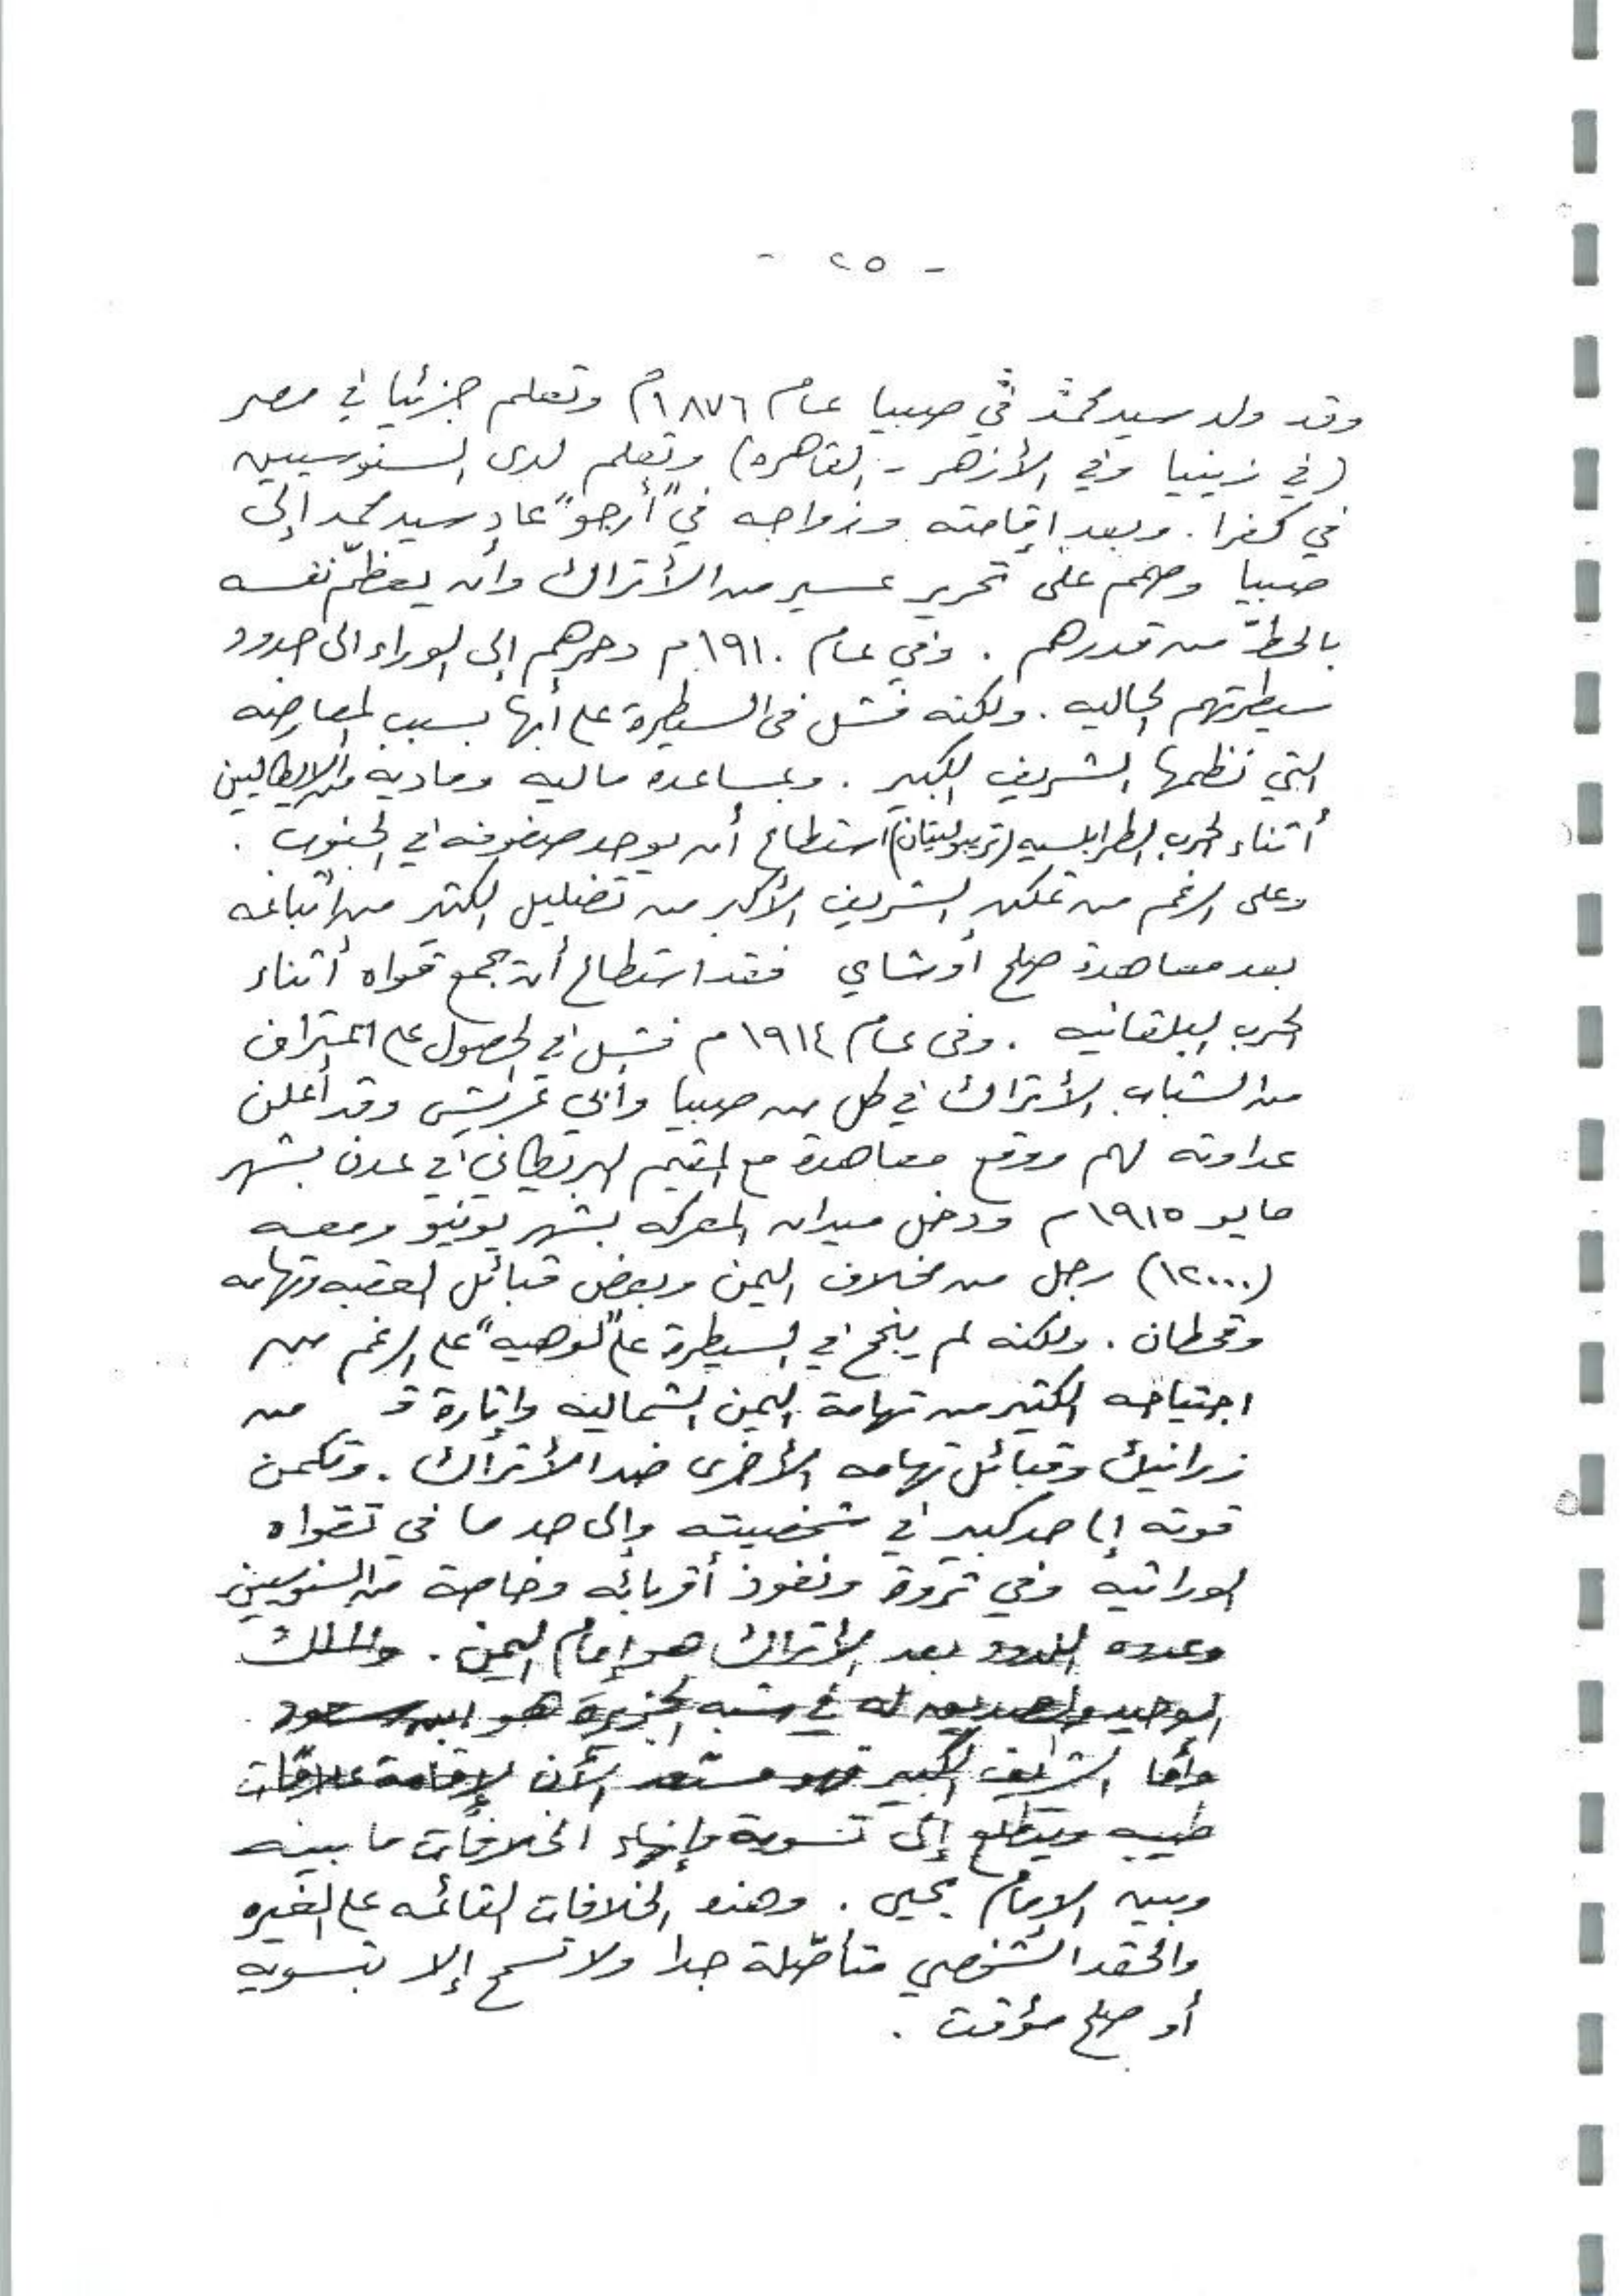 - ٢٥ -
وقد ولد سيد محمد في صبيا عام ١٨٧٦م وتعلم جزئيا في مصر
(في زينيا وفي الأزهر - القاهره) وتعلم لدى السنوسيين
في كفرا . وبعد إقامته وزواجه في "أرجو" عاد سيد محمد إلى
صبيا وصمم على تحرير عسير من الأتراك وأن يعظّم نفسه
بالحطّ من قدرهم . وفي عام ١٩١٠م دحرهم إلى الوراء الى حدود
سيطرتهم الحاليه . ولكنه فشل في السيطرة على أبها بسبب المعارضه
التي نظمها الشريف الكبير . وبمساعده ماليه وماديه من الإيطاليين
أثناء الحرب الطرابلسيه (تريبوليتان) استطاع أن يوحد صفوفه في الجنوب .
وعلى الرغم من تمكن الشريف الأكبر من تضليل الكثير من اتباعه
بعد معاهدة صلح أوشاي فقد استطاع أن يجمع قواه أثناء
الحرب البلقانيه . وفي عام ١٩١٤م فشل في الحصول على اعتراف
من الشباب الأتراك في كل من صبيا وأبي عريش وقد أعلن
عداوته لهم ووقع معاهدة مع المقيم البريطاني في عدن بشهر
مايو ١٩١٥م ودخل ميدان المعركه بشهر يونيو ومعه
(١٢٠٠٠) رجل من مخلاف اليمن وبعض قبائل العقبه وتهامه
وقحطان . ولكنه لم ينجح في السيطرة على "لوهيه" على الرغم من
اجتياحه الكثير من تهامة اليمن الشماليه وإثارة من
زرانيك وقبائل تهامه الأخرى ضد الأتراك . وتكمن
قوته إلى حد كبير في شخصيته وإلى حد ما في تقواه
الوراثيه وفي ثروة ونفوذ أقربائه وخاصة من السنوسيين
وعدوه اللدود بعد الأتراك هو إمام اليمن . والملك
الوحيد والصديق له في شبه الجزيرة هو ابن سعود .
وأما الشريف الكبير فهو مستعد الآن لإقامة علاقات
طيبه ويتطلع إلى تسوية وإنهاء الخلافات ما بينه
وبين الإمام يحيى . وهذه الخلافات القائمه على الغيره
والحقد الشخصي متأصّلة جدا ولا تسمح إلا بتسويه
أو صلح مؤقت .